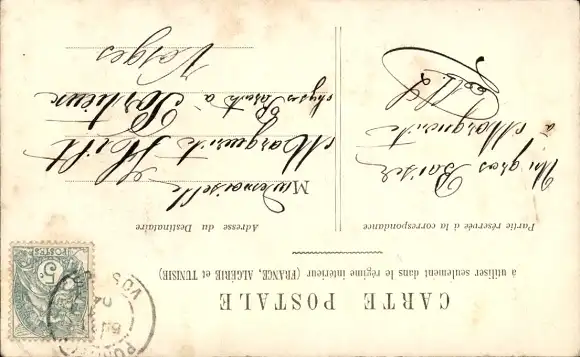 CARTE POSTALE
à utiliser seulement dans le régime intérieur (FRANCE, ALGÉRIE et TUNISIE)
Partie réservée à la correspondance
Un gros Baiser
à
Marguerite
Adresse du Destinataire
Mademoiselle
Marguerite
chez ses Parents à
Vosges
POSTES
5c